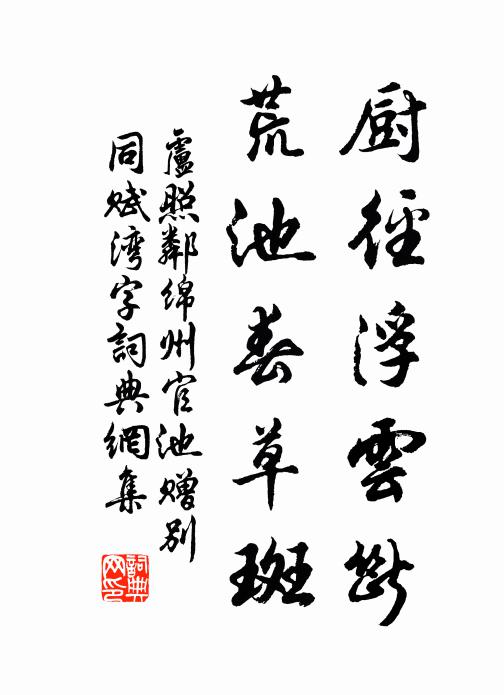 厨徑浮雲斷
荒池春草斑
盧照鄰綿州官池贈別
同賦湾字詞典網集
詞典网印